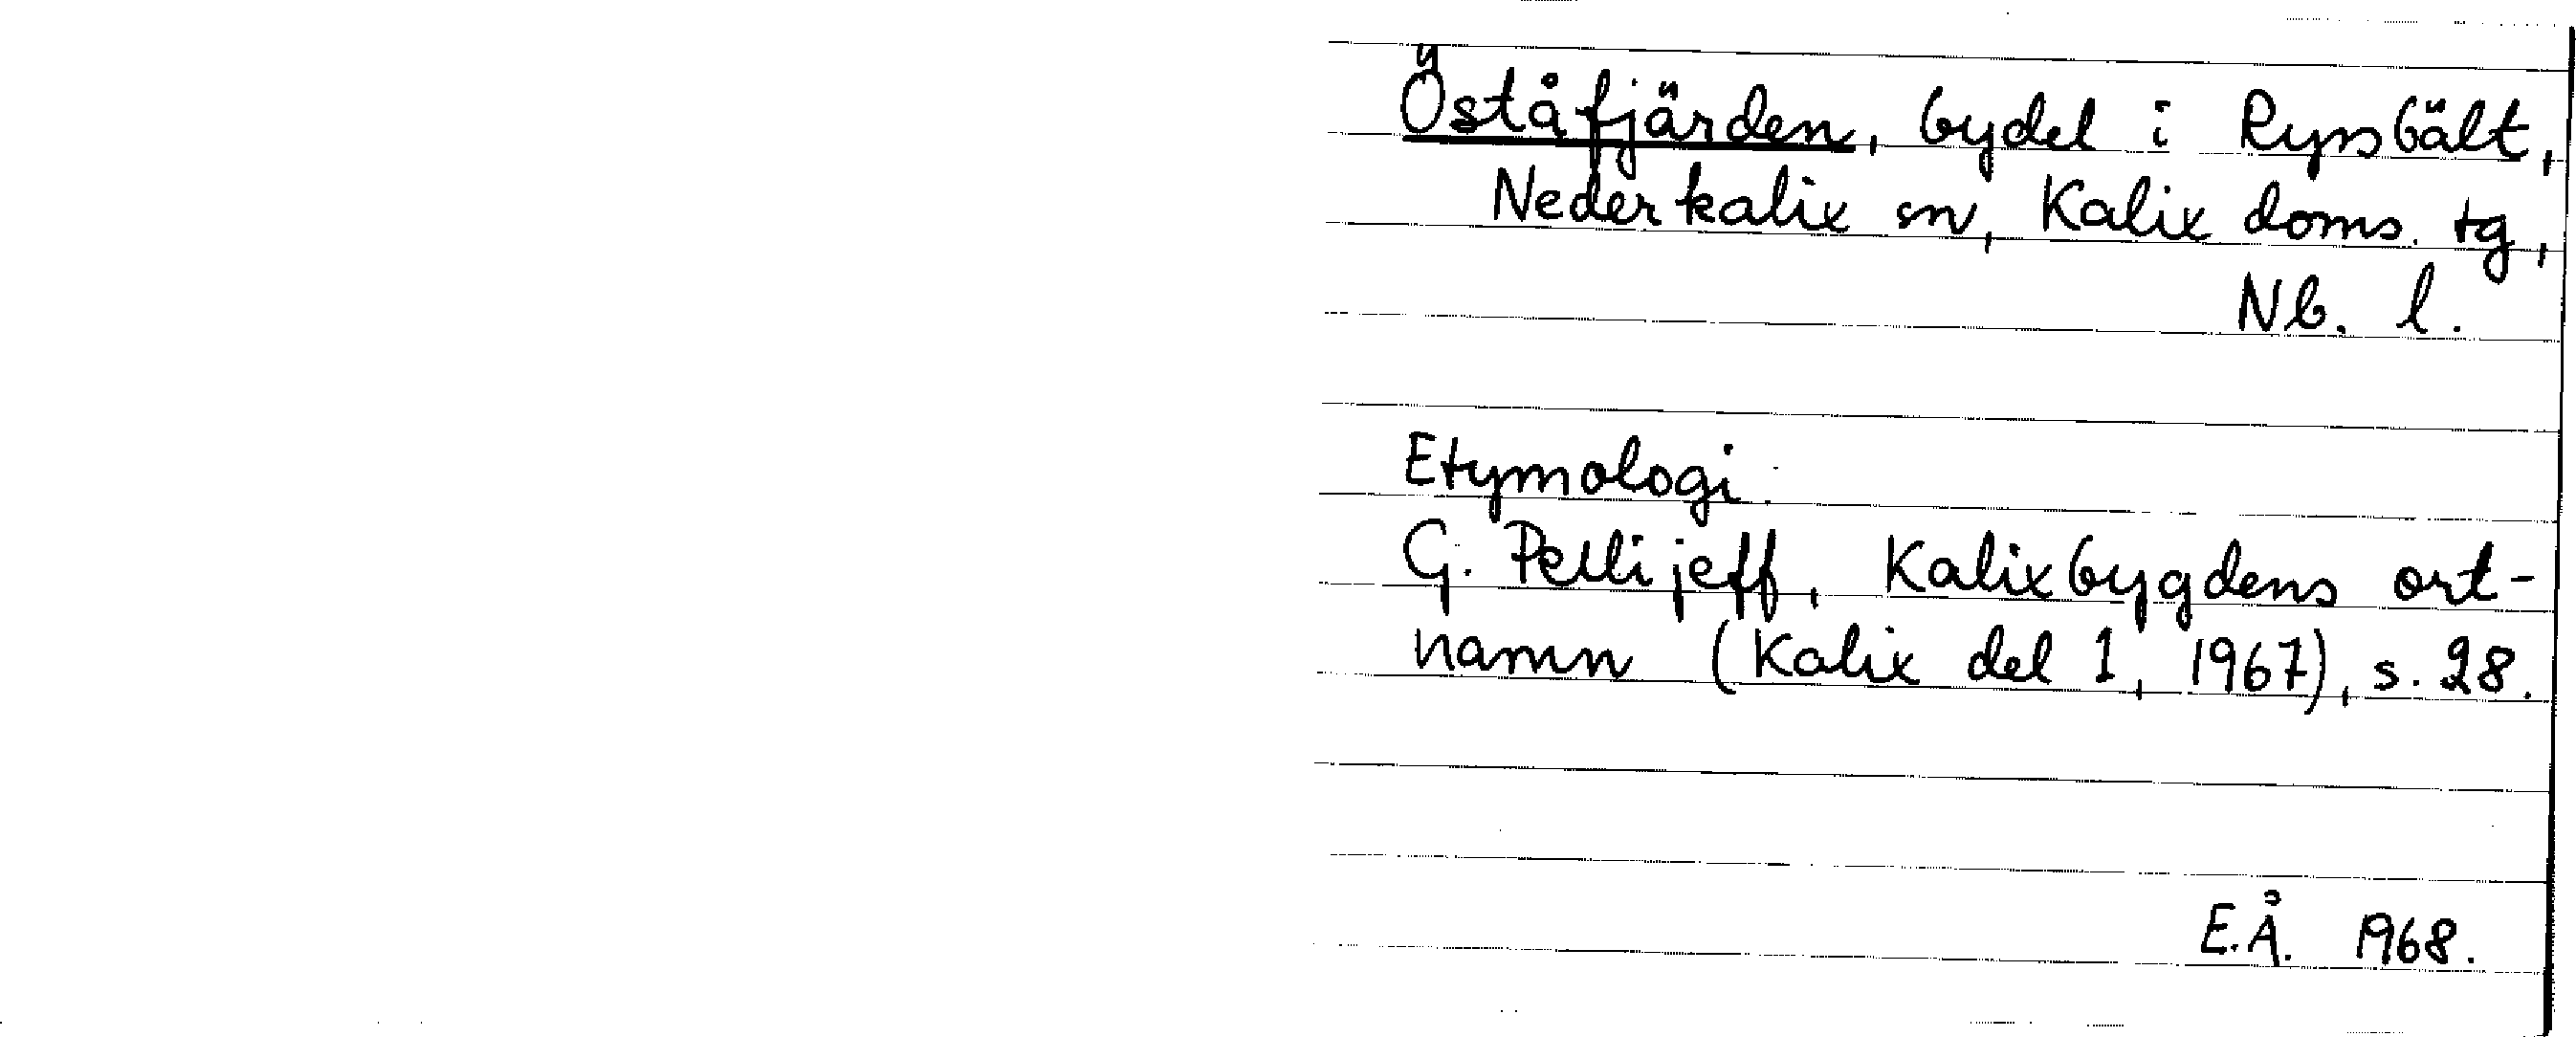 Öståfjärden, bydel i Ryssbält,
Nederkalix sn, Kalix doms. tg,
Nb. l.
Etymologi:
G. Pellijeff, Kalixbygdens ort-
namn (Kalix del 1, 1967), s. 28.
E.Å. 1968.